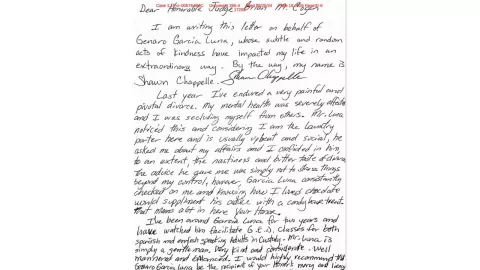 Dear Honorable Judge Brian M. Cogan
I am writing this letter on behalf of
Genaro Garcia Luna, whose subtle and random
acts of kindness have impacted my life in an
extraordinary way. By the way, my name is
Shawn Chappelle. Shawn Chappelle
Last year I've endured a very painful and
pivotal divorce. My mental health was severely
and I was secluding myself from others. Mr. Luna
noticed this and considering I am the laundry
porter here and is usually upbeat and social, he
asked me about my affairs and I confided in him,
to an extent, the nastiness and bitter taste of divorce.
The advice he gave me was simply not to stress things
beyond my control, however Garcia Luna consistently
checked on me and knowing how I loved chocolate
would supplement his advice with a candy bar treat.
That means alot in here Your Honor.
I've been around Garcia Luna for two years and
have watched him facilitate G.E.D. classes for both
spanish and english speaking Adults in Custody. Mr. Luna is
simply a gentleman. Very kind and considerate. Well
mannered and balanced. I would highly recommend that
Genaro Garcia Luna be the recipient of your Honor's mercy and